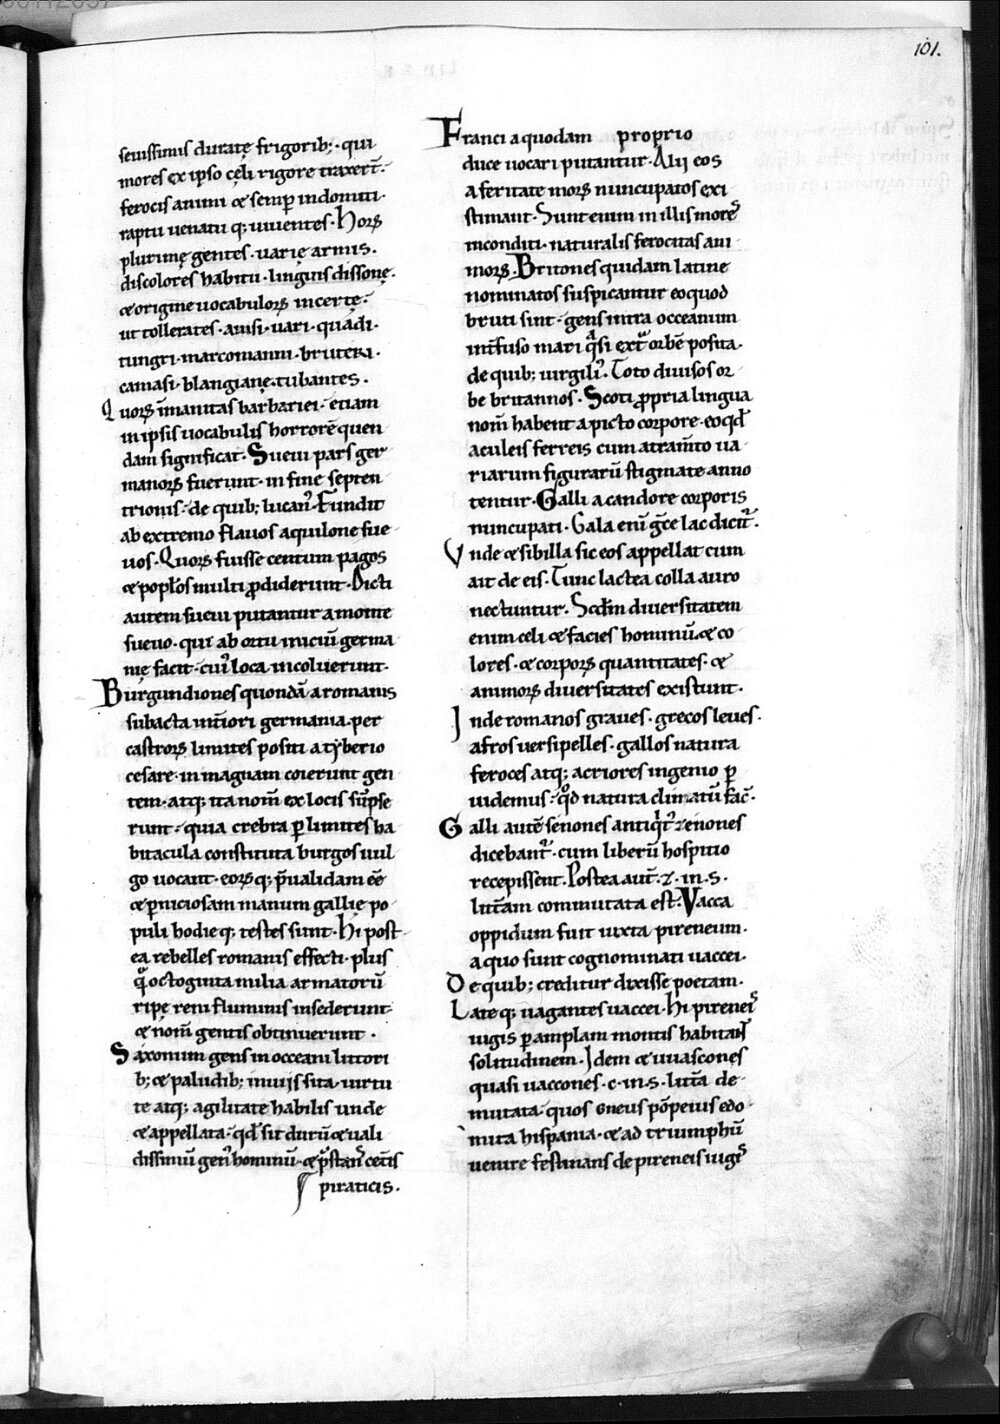 101.
seuissimis duratę frigorib;. qui
mores ex ipso cęli rigore traxer̄t.
ferocis animi & semp̱ indomiti.
raptu uenatu q; uiuentes. Hoꝝ
plurimę gentes. uarię armis.
discolores habitu. linguis dissonę.
& origine uocabuloꝝ incertę.
ut tollerates. amsi. uari. quadi.
tungri. marcomanni. bruteri.
camasi. blangianę. tubantes.
Quoꝝ īmanitas barbariei. etiam
in ipsis uocabulis horrorē quen
dam significat. Sueui pars ger
manoꝝ fuerunt. in fine septen
trionis. de quib; lucan᾿. Fundit
ab extremo flauos aquilone sue
uos. Quoꝝ fuisse centum pagos
& popl̄os multi ꝓdiderunt. Dicti
autem sueui putantur a monte
sueuo. qui ab ortu iniciū germa
nię facit. cui᾿ loca incoluerunt.
Burgundiones quondā a romanis
subacta int̄iori germania. per
castroꝝ limites positi a tyberio
cesare. in magnam coierunt gen
tem. atq; ita nom̄ ex locis sūpse
runt. quia crebra ꝑ limites ha
bitacula constituta burgos uul
go uocant. eoꝝ q; p̄ualidam ēē
& ꝑniciosam manum gallię po
puli hodie q; testes sunt. Hi post
ea rebelles romanis effecti. plus
qͣ octoginta milia armatorū
ripę reni fluminis insederunt.
& nom̄ gentis obtinuerunt.
Saxonum gens in occeani littori
b; & paludib; inuijs sita. uirtu
te atq; agilitate habilis unde
& appellata. qd̄ sit durū & uali
dissimū gen᾿ hominū. & p̄stans cet̄is
piraticis.
Franci a quodam proprio
duce uocari putantur. Alij eos
a feritate moꝝ nuncupatos exi
stimant. Sunt enim in illis mores
inconditi. naturalis ferocitas ani
moꝝ. Britones quidam latine
nominatos suspicantur eo quod
bruti sint. gens intra occeanum
int̄fuso mari qͣsi extͣ orbē posita.
de quib; uirgili᾿. Toto diuisos or
be britannos. Scoti ꝓpria lingua
nom̄ habent a picto corpore. eo qd̄
aculeis ferreis cum atram̄to ua
riarum figurarū stigmate anno
tentur. Galli a candore corporis
nuncupati. Gala enī gr̄ce lac dicit᾿.
Vnde & sibilla sic eos appellat cum
ait de eis. Tunc lactea colla auro
nectuntur. Scd̄m diuersitatem
enim celi & facies hominū. & co
lores. & corpoꝝ quantitates. &
animoꝝ diuersitates existunt.
Inde romanos graues. grecos leues.
afros uersipelles. gallos natura
feroces atq; acriores ingenio ꝑ
uidemus. qd̄ natura climatū fac̄.
Galli autē senones antiqͥt᾿ xenones
dicebant᾿. cum liberū hospitio
recepissent. Postea aut̄. z. in. s.
litt̄am commutata est. Vacca
oppidum fuit iuxta pireneum.
a quo sunt cognominati uaccei.
De quib; creditur dixisse poetam.
Late q; uagantes uaccei. Hi pirenei
iugis ꝑ amplam montis habitant
solitudinem. Idem & uuascones
quasi uaccones. c. in. s. litt̄a de
mutata. quos gneus pōpeius edo
mita hispania. & ad triumphū
uenire festinans de pireneis iugis